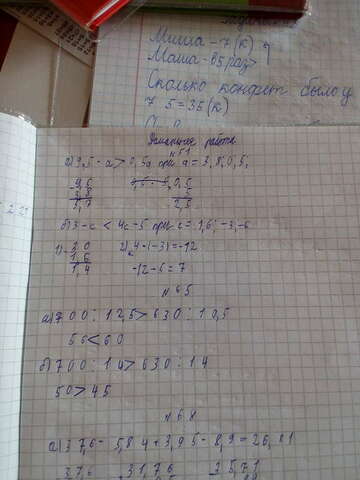 Миша - 7 (к)
Маша - в 5 раз
Сколько конфет было у
7 5 = 35 (к)
Домашняя работа
№ 51
а) 9,5 - а > 0,5а при а = 3,8, 0,5,
б) 3 - с < 4с - 5 при с = 1,6; -3; -6
1) 3,0 2) 4 · (-3) = -12
1,6
1,4 -12 - 6 = 7
№ 65
а) 700 : 12,5 > 630 : 10,5
56 < 60
б) 700 : 14 > 630 : 14
50 > 45
№ 68
а) 37,6 - 5,84 + 3,95 - 8,9 = 26,81
37,6 31,76 35,71